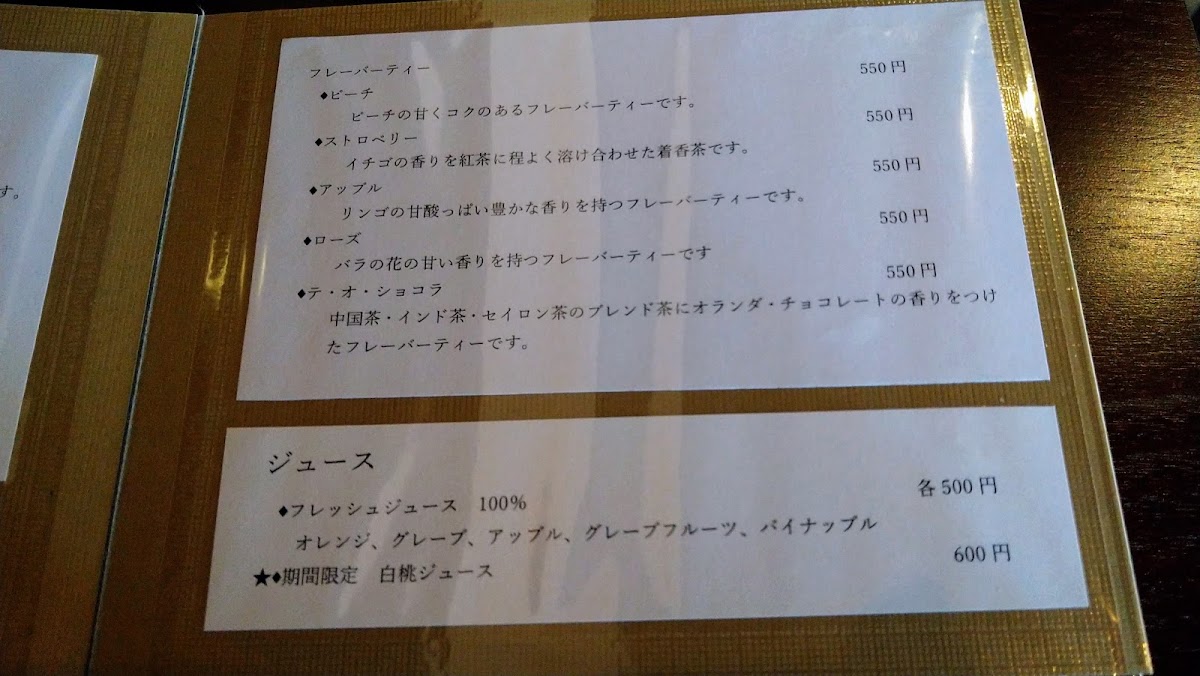 す。
フレーバーティー
♦ピーチ 550円
ピーチの甘くコクのあるフレーバーティーです。
♦ストロベリー 550円
イチゴの香りを紅茶に程よく溶け合わせた着香茶です。
♦アップル 550円
リンゴの甘酸っぱい豊かな香りを持つフレーバーティーです。
♦ローズ 550円
バラの花の甘い香りを持つフレーバーティーです
♦テ・オ・ショコラ 550円
中国茶・インド茶・セイロン茶のブレンド茶にオランダ・チョコレートの香りをつけ
たフレーバーティーです。
ジュース
♦フレッシュジュース 100% 各500円
オレンジ、グレープ、アップル、グレープフルーツ、パイナップル
★♦期間限定 白桃ジュース 600円